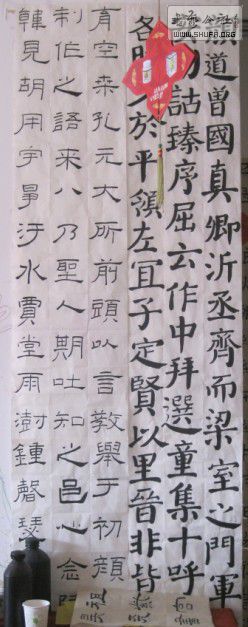 WWW.SHUFA.ORG
道曾國真卿沂丞齊而梁室之門軍
詁臻序屈云作中拜選童集十呼
各於平領左宜子定賢以里晉非皆
有空桒孔元大所前頭以言教舉于初顏
制作之語來八乃聖人期吐知之邑心念
韓見胡用宇汙水賈堂雨澍鍾磬瑟